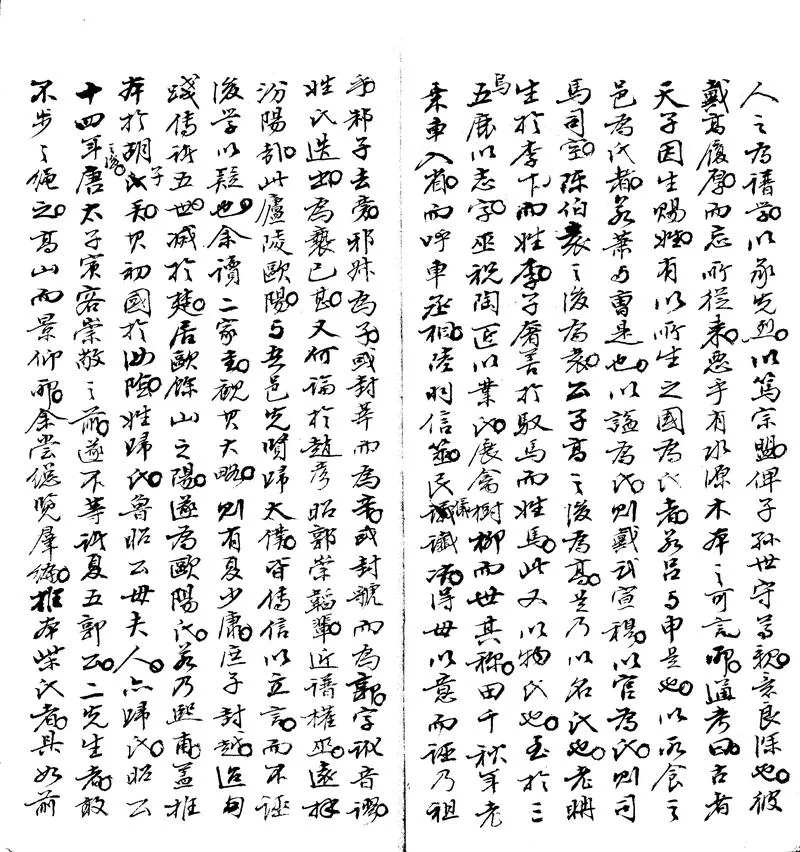 人之為譜學以承先烈以篤宗盟俾子孫世守為親意良深也彼
戴高履厚而忘所從來惡乎有水源木本之可言哪通考曰古者
天子因生賜姓有以所生之國為氏者若呂与申是也以所食之
邑為氏者若葉与曹是也以諡為氏則戴武宣穆以官為氏則司
馬司空陈伯袁之後為袁公子高之後為高是乃以名氏也老聃
生於李下而姓李子奢善於馭馬而姓馬此又以物氏也至於三
烏五鹿以志字巫祝陶匠以業氏展禽樹柳而世其称田千秋年老
乘車入省而呼車丞相陸羽信筮民儀讖得毋以意而誣乃祖
乎邾子去旁邪妹為子或封莘而為辛或封虢而為郭字訛音謬
姓氏迭出為褻已甚又何論於趙彥昭郭崇韜輩近譜權巫遠拜
汾陽哉此廬陵歐陽与吾邑先賢歸太僕皆傳信以立言而不誣
後學以疑也余讀二家書觀其大略則有夏少康庶子封越迨句
踐傳訖五世滅於楚居歐餘山之陽遂為歐陽氏若乃熙甫蓋推
本於胡子氏矣其初國於汝陰姓歸氏魯昭公母夫人亦歸氏昭公
十四年唐太子賓客崇敬之前遂不等訖夏五郭公二先生者敢
不步之繩之高山而景仰哪余嘗總覽群籍推本柴氏者具如前